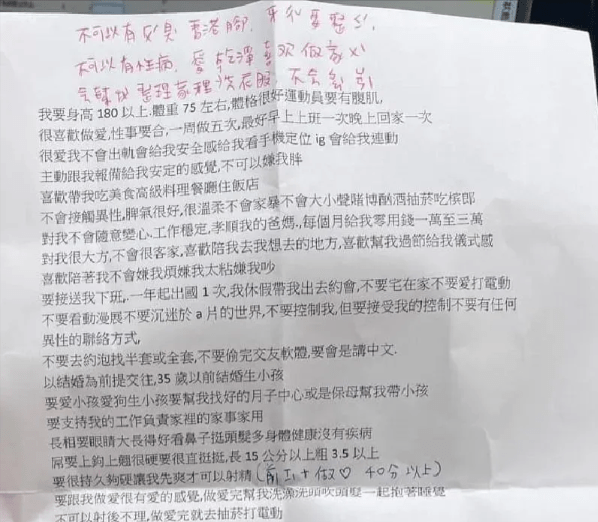 不可以有口臭 香港腳, 牙齒要整齊,
不可以有性病. 愛乾淨喜歡做家事
會 整理家裡 洗衣服, 不會
我要身高180以上.體重75左右,體格很好運動員要有腹肌,
很喜歡做愛,性事要合,一周做五次,最好早上上班一次晚上回家一次
很愛我不會出軌會給我安全感給我看手機定位ig會給我連動
主動跟我報備給我安定的感覺,不可以嫌我胖
喜歡帶我吃美食高級料理餐廳住飯店
不會接觸異性,脾氣很好,很溫柔不會家暴不會大小聲賭博酗酒抽菸吃檳郎
對我不會隨意變心.工作穩定,孝順我的爸媽.,每個月給我零用錢一萬至三萬
對我很大方,不會很客家,喜歡陪我去我想去的地方,喜歡幫我過節給我儀式感
喜歡陪著我不會嫌我煩嫌我太粘嫌我吵
要接送我下班,.一年起出國1次,我休假帶我出去約會,不要宅在家不要愛打電動
不要看動漫展不要沉迷於a片的世界,不要控制我,但要接受我的控制不要有任何
異性的聯絡方式,
不要去約泡找半套或全套,不要偷完交友軟體,要會是講中文.
以結婚為前提交往,35歲以前結婚生小孩
要愛小孩愛狗生小孩要幫我找好的月子中心或是保母幫我帶小孩
要支持我的工作負責家裡的家事家用
長相要眼睛大長得好看鼻子挺頭髮多身體健康沒有疾病
屌要上鉤上翹很硬要很直挺挺,長15公分以上粗3.5以上
要很持久夠硬讓我先爽才可以射精(前戲+做♡ 40分以上)
要跟我做愛很有愛的感覺,做愛完幫我洗澡洗頭吹頭髮一起抱著睡覺
不可以射後不理,做愛完就去抽菸打電動